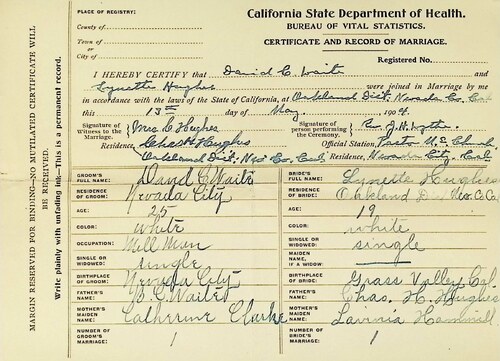 PLACE OF REGISTRY:
County of
Town of
or
City of
California State Department of Health.
BUREAU OF VITAL STATISTICS.
CERTIFICATE AND RECORD OF MARRIAGE.
Registered No.
I HEREBY CERTIFY that David C Waite and
Lynette Hughes were joined in Marriage by me
in accordance with the laws of the State of California, at Oakland Dist. Nevada Co. Cal
this 13th day of May, 1909.
Signature of Witness to the Marriage, Mrs C Hughes
Signature of person performing the Ceremony, Rev. J. H.
Residence, Chas H Hughes
Official Station, Pastor M. E. Church
Oakland Dist. Nev Co. Cal
Residence, Nevada City, Cal
GROOM'S FULL NAME: David C Waite
BRIDE'S FULL NAME: Lynette Hughes
RESIDENCE OF GROOM: Nevada City
RESIDENCE OF BRIDE: Oakland Nev. C. Ca
AGE: 25
AGE: 19
COLOR: white
COLOR: white
OCCUPATION: Mill Man
SINGLE OR WIDOWED: single
SINGLE OR WIDOWED: single
MAIDEN NAME, IF A WIDOW:
BIRTHPLACE OF GROOM: Nevada City
BIRTHPLACE OF BRIDE: Grass Valley Cal
FATHER'S NAME: Waite
FATHER'S NAME: Chas. H. Hughes
MOTHER'S MAIDEN NAME: Catherine Clarke
MOTHER'S MAIDEN NAME: Lavinia Hammill
NUMBER OF GROOM'S MARRIAGE: 1
NUMBER OF BRIDE'S MARRIAGE: 1
MARGIN RESERVED FOR BINDING—NO MUTILATED CERTIFICATE WILL BE RECEIVED.
Write plainly with unfading ink—This is a permanent record.